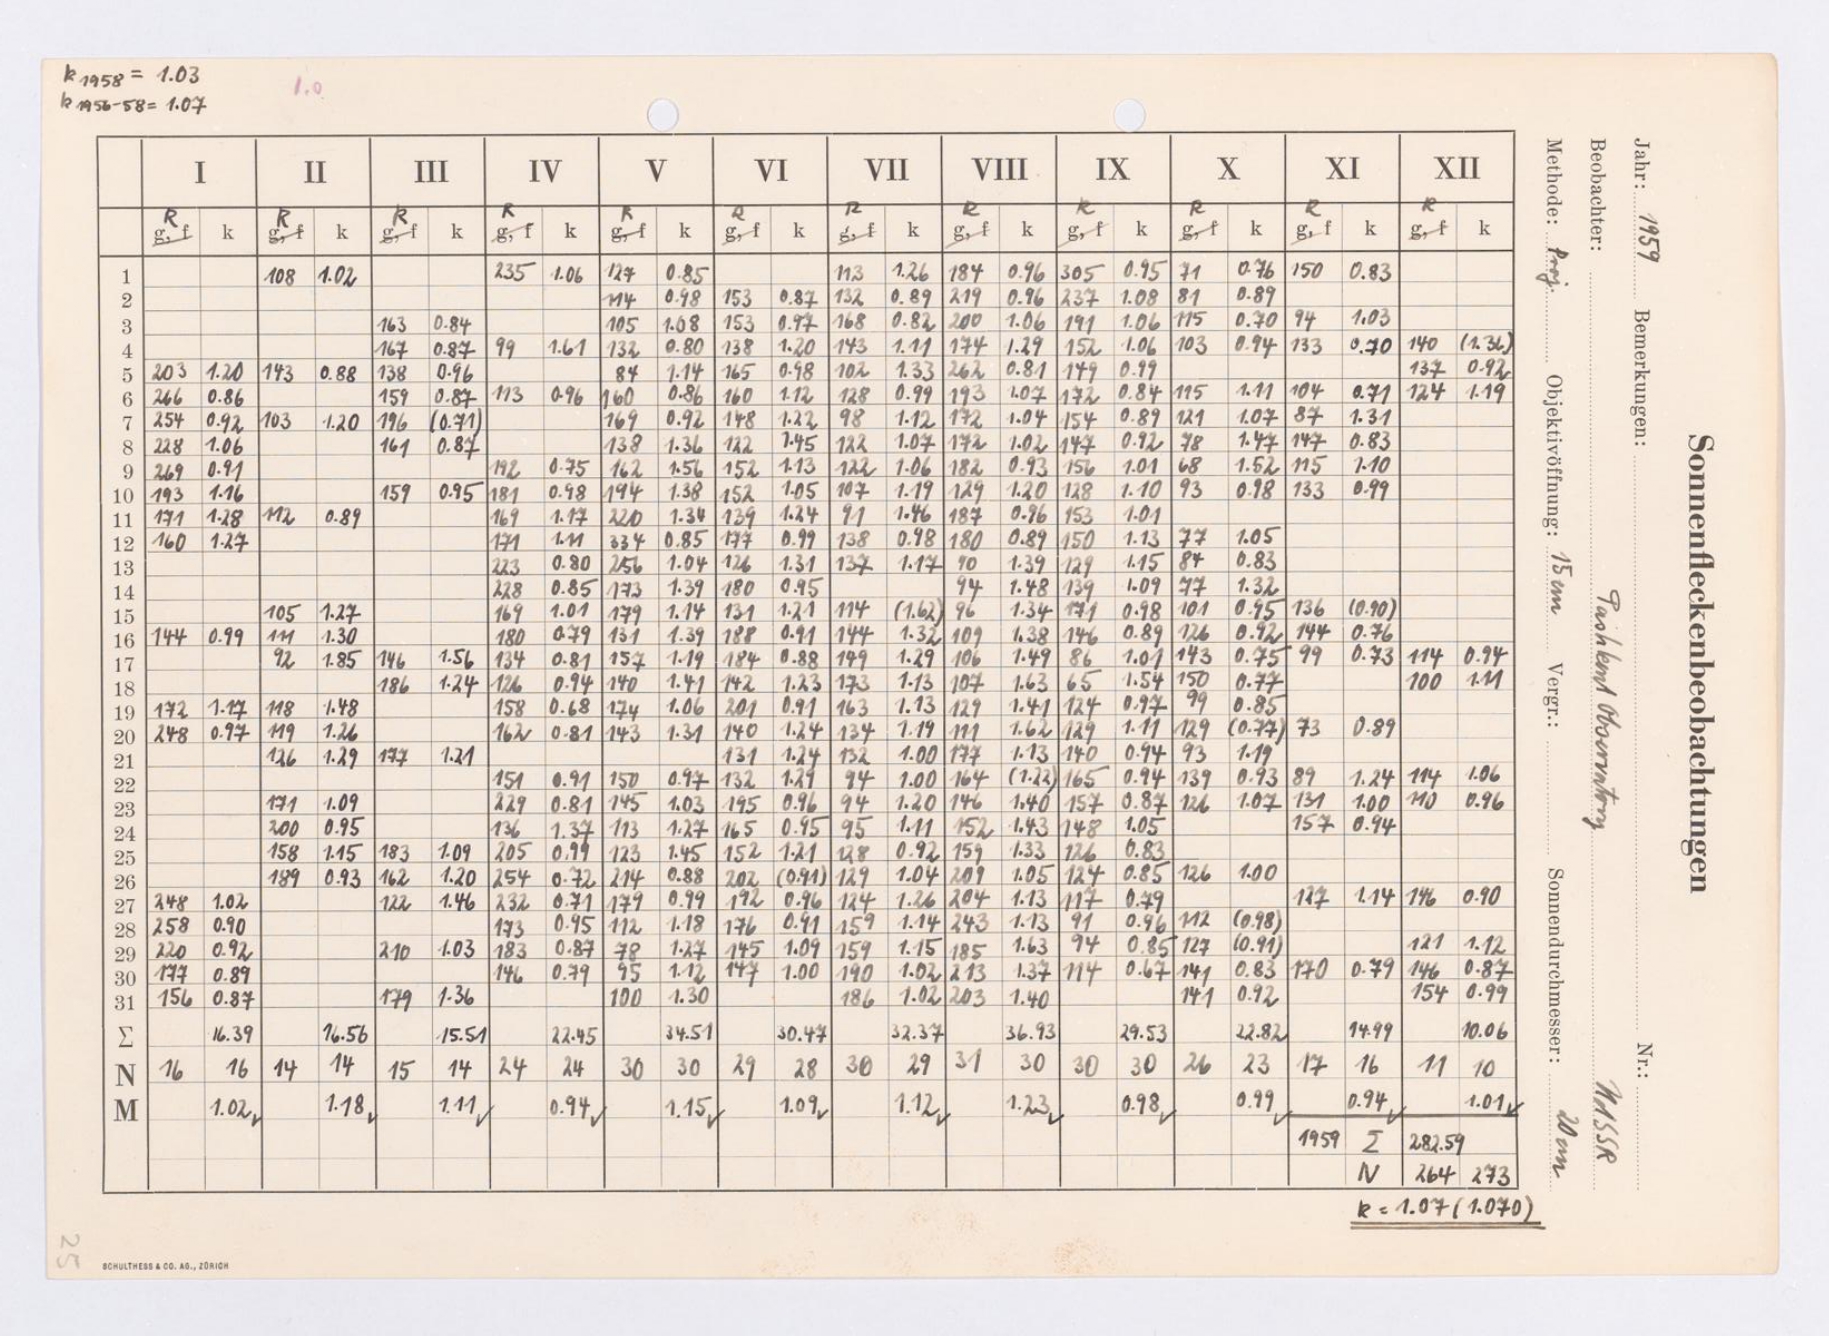 k 1958 = 1.03
k 1956-58 = 1.07
1.0
I II III IV V VI VII VIII IX X XI XII
R R R R R R R R R R R R
g, f k g, f k g, f k g, f k g, f k g, f k g, f k g, f k g, f k g, f k g, f k g, f k
1 108 1.02 235 1.06 127 0.85 113 1.26 184 0.96 305 0.95 71 0.76 150 0.83
2 114 0.98 153 0.87 132 0.89 219 0.96 237 1.08 81 0.89
3 163 0.84 105 1.08 153 0.97 168 0.82 200 1.06 191 1.06 115 0.70 94 1.03
4 167 0.87 99 1.61 132 0.80 138 1.20 143 1.11 174 1.29 152 1.06 103 0.94 133 0.70 140 (1.36)
5 203 1.20 143 0.88 138 0.96 84 1.14 165 0.98 102 1.33 262 0.81 149 0.99 137 0.92
6 266 0.86 159 0.87 113 0.96 160 0.86 160 1.12 128 0.99 193 1.07 172 0.84 115 1.11 104 0.71 124 1.19
7 254 0.92 103 1.20 196 (0.71) 169 0.92 148 1.22 98 1.12 172 1.04 154 0.89 121 1.07 87 1.31
8 228 1.06 161 0.87 138 1.36 122 1.45 122 1.07 172 1.02 147 0.92 78 1.47 147 0.83
9 269 0.91 192 0.75 162 1.56 152 1.13 122 1.06 182 0.93 156 1.01 68 1.52 115 1.10
10 193 1.16 159 0.95 181 0.98 194 1.38 152 1.05 107 1.19 129 1.20 128 1.10 93 0.98 133 0.99
11 171 1.28 112 0.89 169 1.17 220 1.34 139 1.24 91 1.46 187 0.96 153 1.01
12 160 1.27 171 1.11 334 0.85 177 0.99 138 0.98 180 0.89 150 1.13 77 1.05
13 223 0.80 256 1.04 126 1.31 137 1.17 90 1.39 129 1.15 84 0.83
14 228 0.85 173 1.39 180 0.95 94 1.48 139 1.09 77 1.32
15 105 1.27 169 1.01 179 1.14 131 1.21 114 (1.62) 96 1.34 171 0.98 101 0.95 136 (0.90)
16 144 0.99 111 1.30 180 0.79 131 1.39 188 0.91 144 1.32 109 1.38 146 0.89 126 0.92 144 0.76
17 92 1.85 146 1.56 134 0.81 157 1.19 184 0.88 149 1.29 106 1.49 86 1.01 143 0.75 99 0.73 114 0.94
18 186 1.24 126 0.94 140 1.41 142 1.23 173 1.13 107 1.63 65 1.54 150 0.77 100 1.11
19 172 1.17 118 1.48 158 0.68 174 1.06 201 0.91 163 1.13 129 1.41 124 0.97 99 0.85
20 248 0.97 119 1.26 162 0.81 143 1.31 140 1.24 134 1.19 111 1.62 129 1.11 129 (0.77) 73 0.89
21 126 1.29 177 1.21 131 1.24 132 1.00 177 1.13 140 0.94 93 1.19
22 151 0.91 150 0.97 132 1.29 94 1.00 164 (1.22) 165 0.94 139 0.93 89 1.24 114 1.06
23 171 1.09 229 0.81 145 1.03 195 0.96 94 1.20 146 1.40 157 0.87 126 1.07 131 1.00 110 0.96
24 200 0.95 136 1.37 113 1.27 165 0.95 95 1.11 152 1.43 148 1.05 157 0.94
25 158 1.15 183 1.09 205 0.99 123 1.45 152 1.21 128 0.92 159 1.33 126 0.83
26 189 0.93 162 1.20 254 0.72 214 0.88 202 (0.91) 129 1.04 209 1.05 124 0.85 126 1.00
27 248 1.02 122 1.46 232 0.71 179 0.99 192 0.96 124 1.26 204 1.13 117 0.79 127 1.14 146 0.90
28 258 0.90 173 0.95 112 1.18 176 0.91 159 1.14 243 1.13 91 0.96 112 (0.98)
29 220 0.92 210 1.03 183 0.87 78 1.27 145 1.09 159 1.15 185 1.63 94 0.85 127 (0.91) 121 1.12
30 177 0.89 146 0.79 95 1.12 147 1.00 190 1.02 213 1.37 114 0.67 141 0.83 170 0.79 146 0.87
31 156 0.87 179 1.36 100 1.30 186 1.02 203 1.40 141 0.92 154 0.99
Σ 16.39 16.56 15.51 22.45 34.51 30.47 32.37 36.93 29.53 22.82 14.99 10.06
N 16 16 14 14 15 14 24 24 30 30 29 28 30 29 31 30 30 30 26 23 17 16 11 10
M 1.02✓ 1.18✓ 1.11✓ 0.94✓ 1.15✓ 1.09✓ 1.12✓ 1.23✓ 0.98✓ 0.99✓ 0.94✓ 1.01✓
1959 Σ 282.59
N 264 273
k = 1.07 (1.070)
Sonnenfleckenbeobachtungen
Jahr: 1959 Bemerkungen: Nr.:
Beobachter: Tashkent Observatory UdSSR
Methode: Proj. Objektivöffnung: 15 cm Vergr.: Sonnendurchmesser: 20 cm
25
SCHULTHESS & CO. AG., ZÜRICH